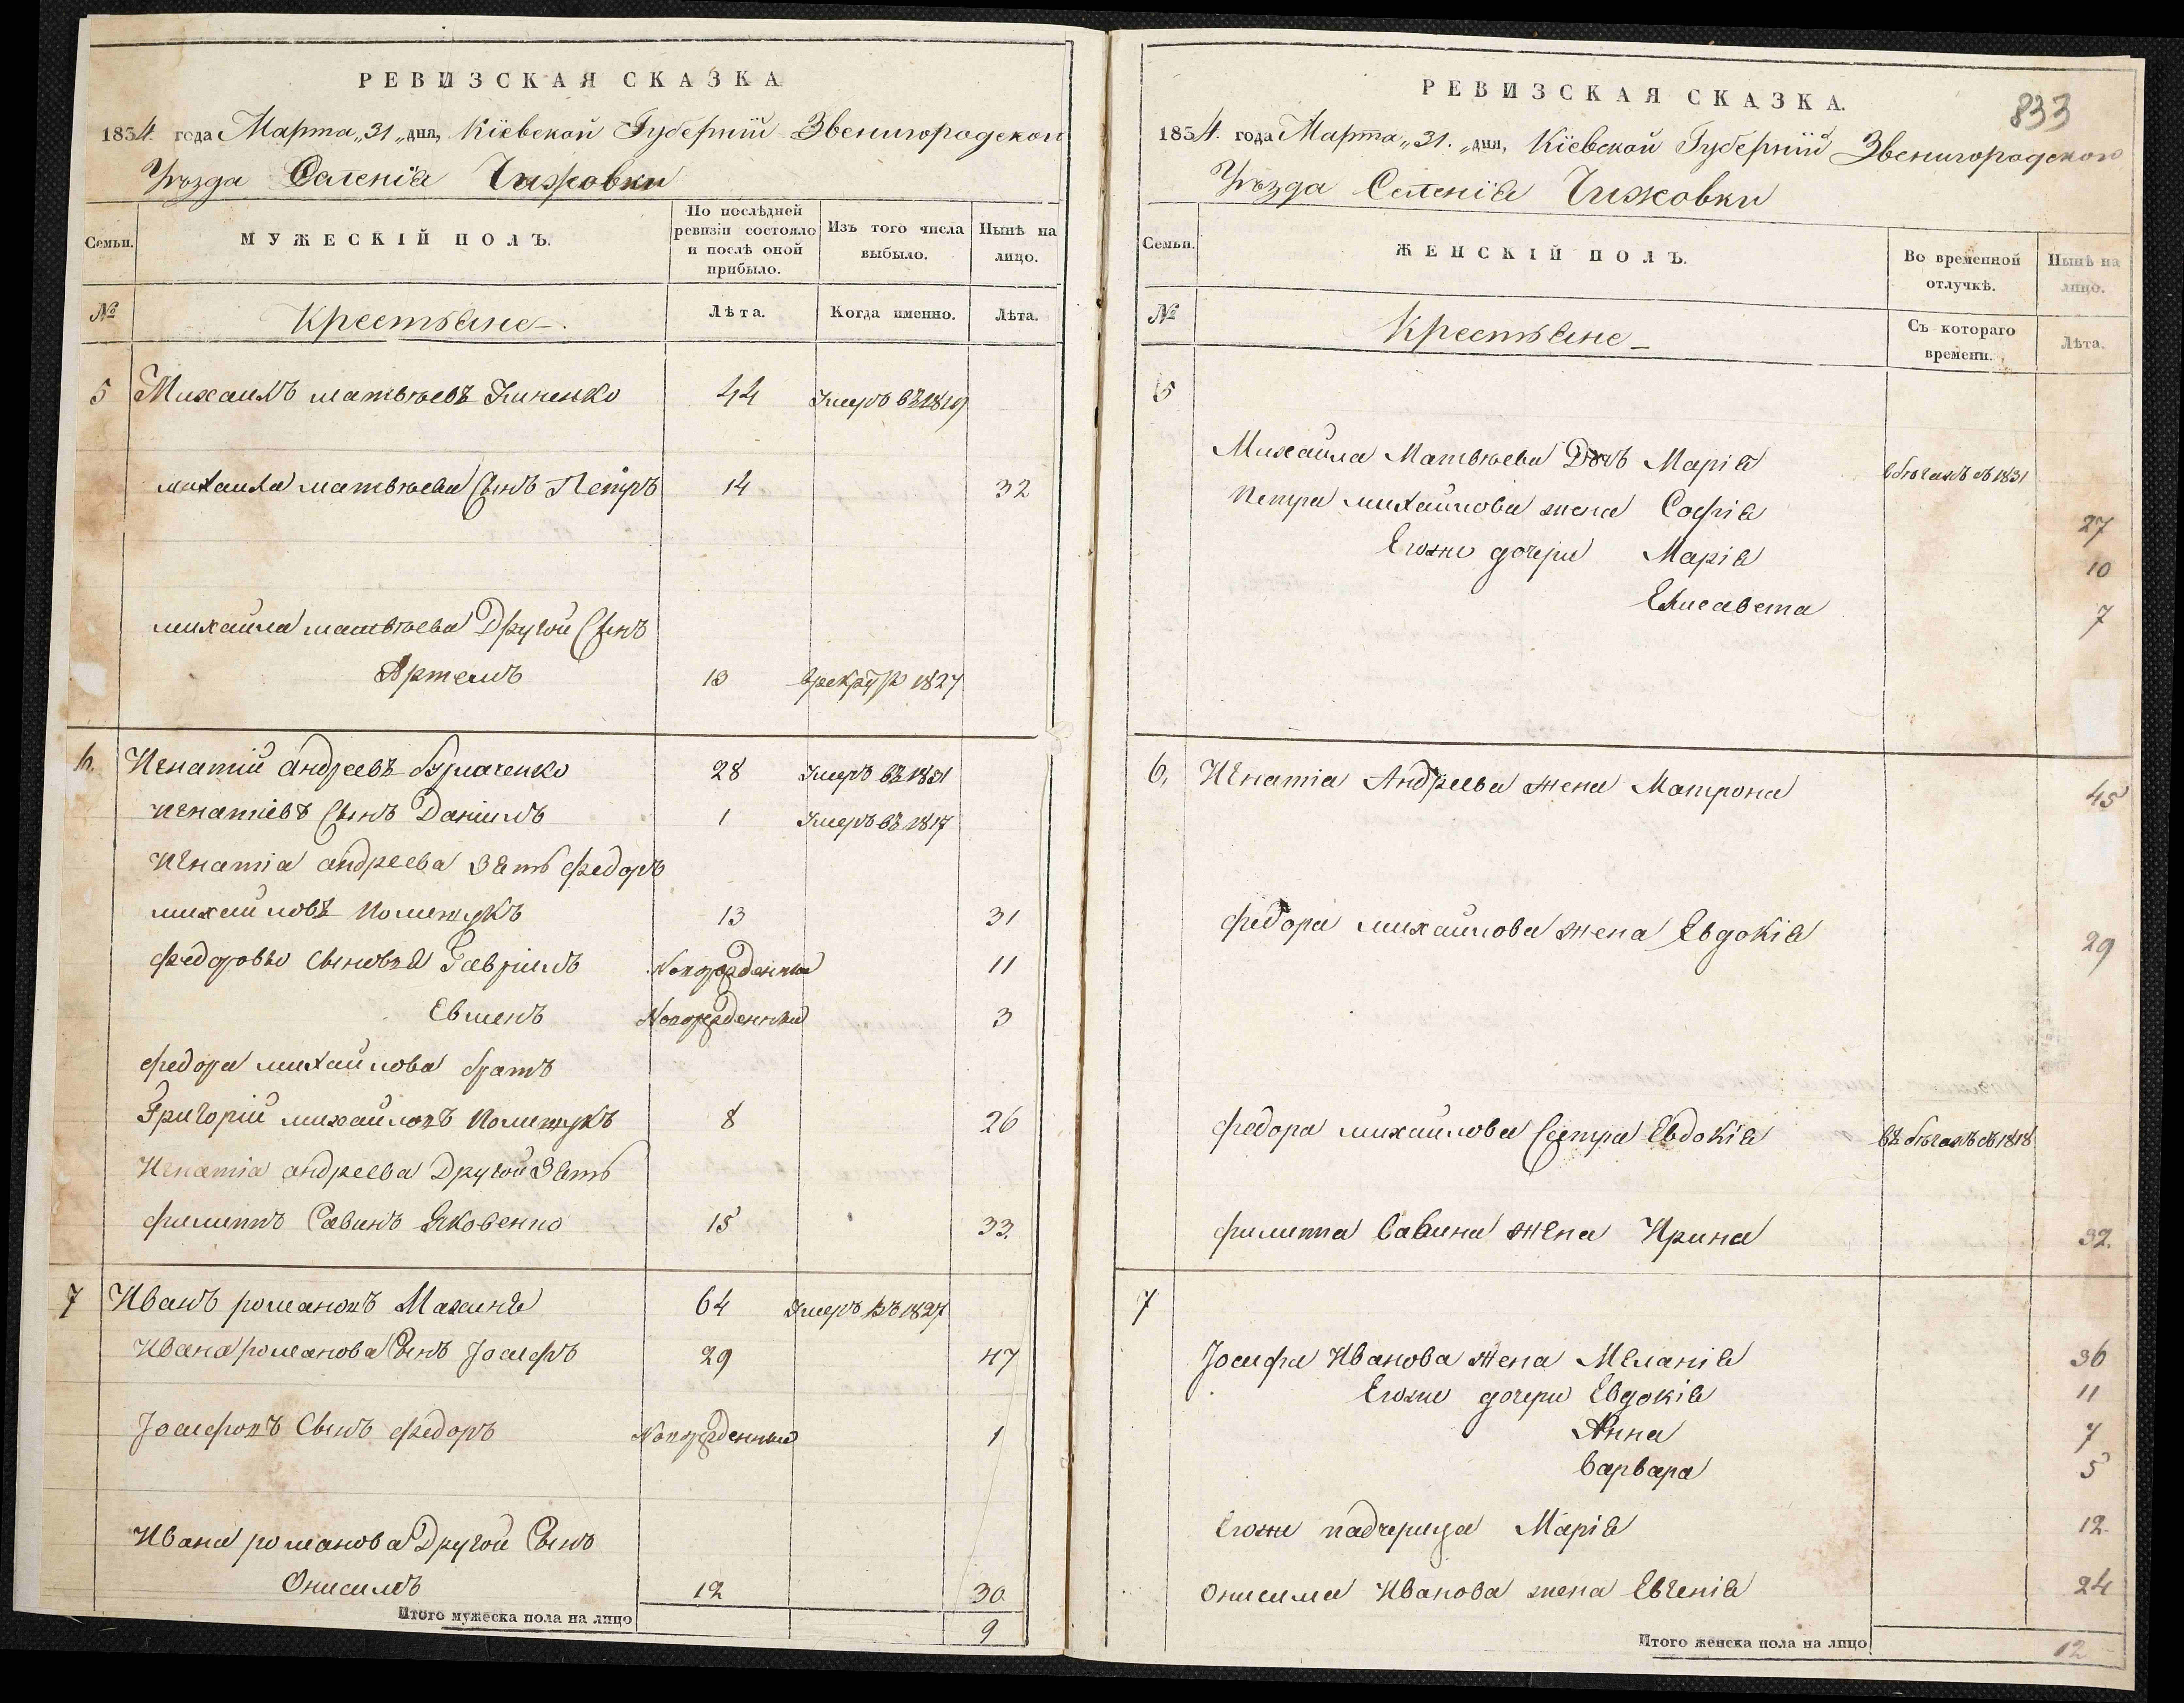 РЕВИЗСКАЯ СКАЗКА
1834. года Марта „31„ дня, Кіевской Губерніи Звенигородскаго
Уѣзда Селенія Чижовки
Семьи.
МУЖЕСКІЙ ПОЛЪ.
По послѣдней ревизіи состояло и послѣ оной прибыло.
Изъ того числа выбыло.
Нынѣ на лицо.
№
Крестьяне
Лѣта.
Когда именно.
Лѣта.
5 Михаилъ матвѣевъ 44 Умеръ въ 1819
михаила матвѣева Сынъ Петръ 14 32
михаила матвѣева Другой Сынъ
Артемъ 13 в рекру 1827
6. Игнатій андреевъ 28 Умеръ въ 1831
игнатіевъ Сынъ Даніилъ 1 Умеръ въ 1817
Игнатіа андреева Зять федоръ
михайловъ Полищукъ 13 31
федоровы сыновья Гавріилъ Новорожденный 11
Евменъ Новорожденный 3
федора михайлова братъ
Григорій михайловъ Полищукъ 8 26
Игнатіа андреева Другой Зять
филиппъ Савинъ Яковенко 15 33.
7 Иванъ романовъ Махиня 64 Умеръ въ 1827
Ивана романова Сынъ Іосифъ 29 47
Іосифовъ Сынъ федоръ Новорожденный 1
Ивана романова Другой Сынъ
Онисимъ 12 30
Итого мужеска пола на лицо 9
РЕВИЗСКАЯ СКАЗКА.
833
1834. года Марта „31. „ дня, Кіевской Губерніи Звенигородскаго
Уѣзда Селенія Чижовки
Семьи.
ЖЕНСКІЙ ПОЛЪ.
Во временной отлучкѣ.
Нынѣ на лицо.
№
Крестьяне
Съ котораго времени.
Лѣта.
5
Михайла Матвѣева Дочь Марія в бѣгахъ съ 1831
Петра михайлова жена Софія 27
Егоже дочери Марія 10
Елисавета 7
6, Игнатіа Андреева жена Матрона 45
федора михайлова жена Евдокія 29
федора михайлова Сестра Евдокія въ бѣгахъ съ 1818
филиппа Савина жена Ирина 32.
7
Іосифа Иванова жена Меланія 36
Егоже дочери Евдокія 11
Анна 7
Варвара 5
Егоже падчерица Марія 12.
Онисима Иванова жена Евгенія 24
Итого женска пола на лицо 12